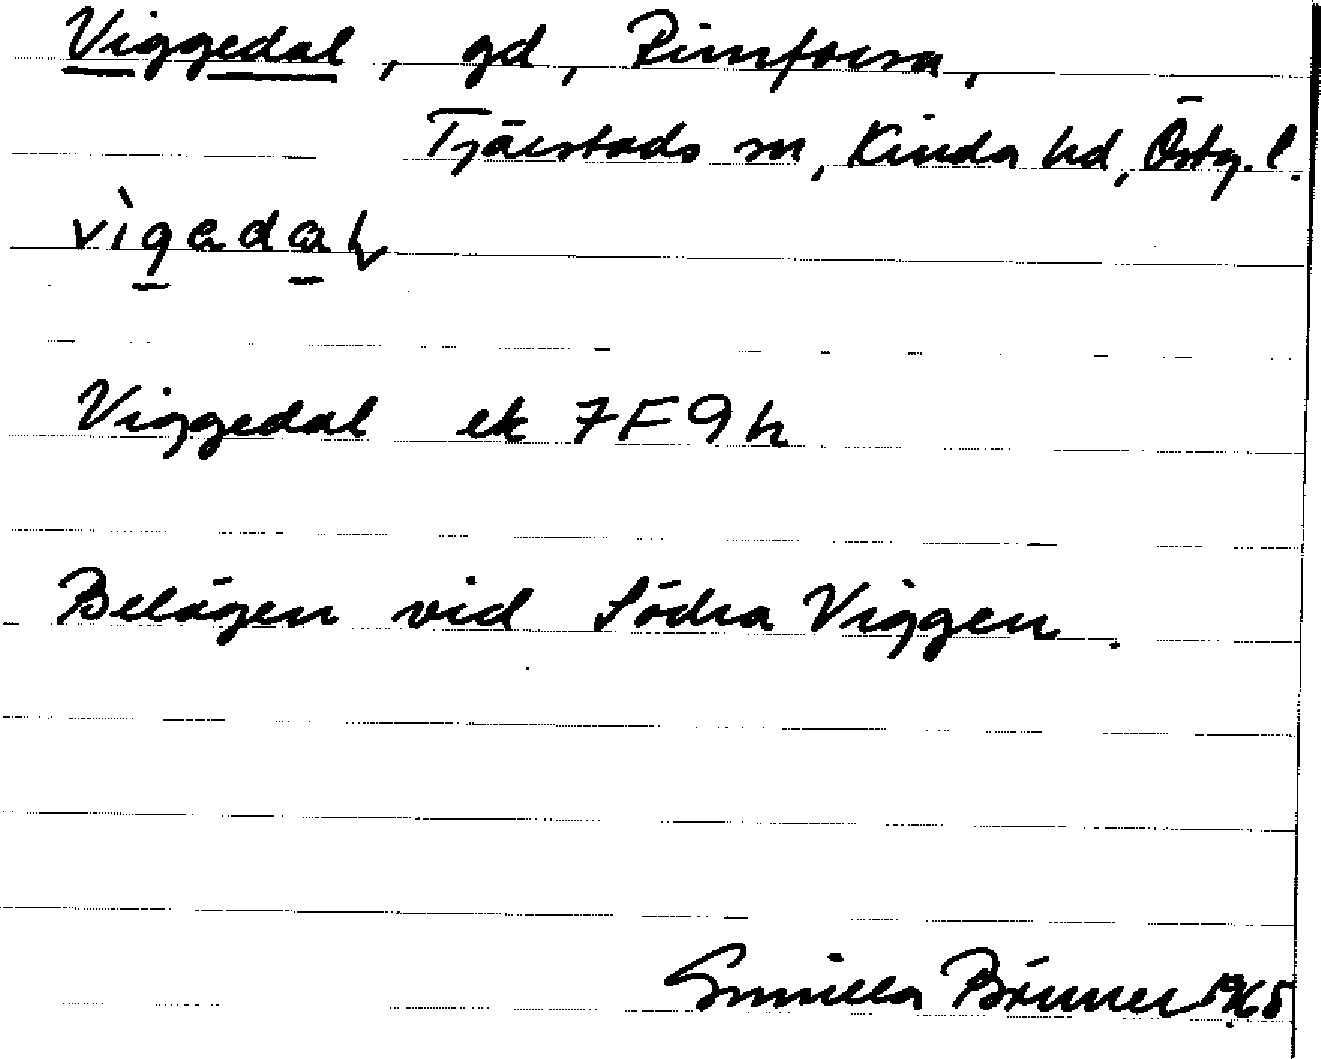 Viggedal, gd, Rimforsa,
Tjärstads sn, Kinda hd, Östg. l.
Viggedal ek 7F9h
Belägen vid Södra Viggen.
Gunilla 1965